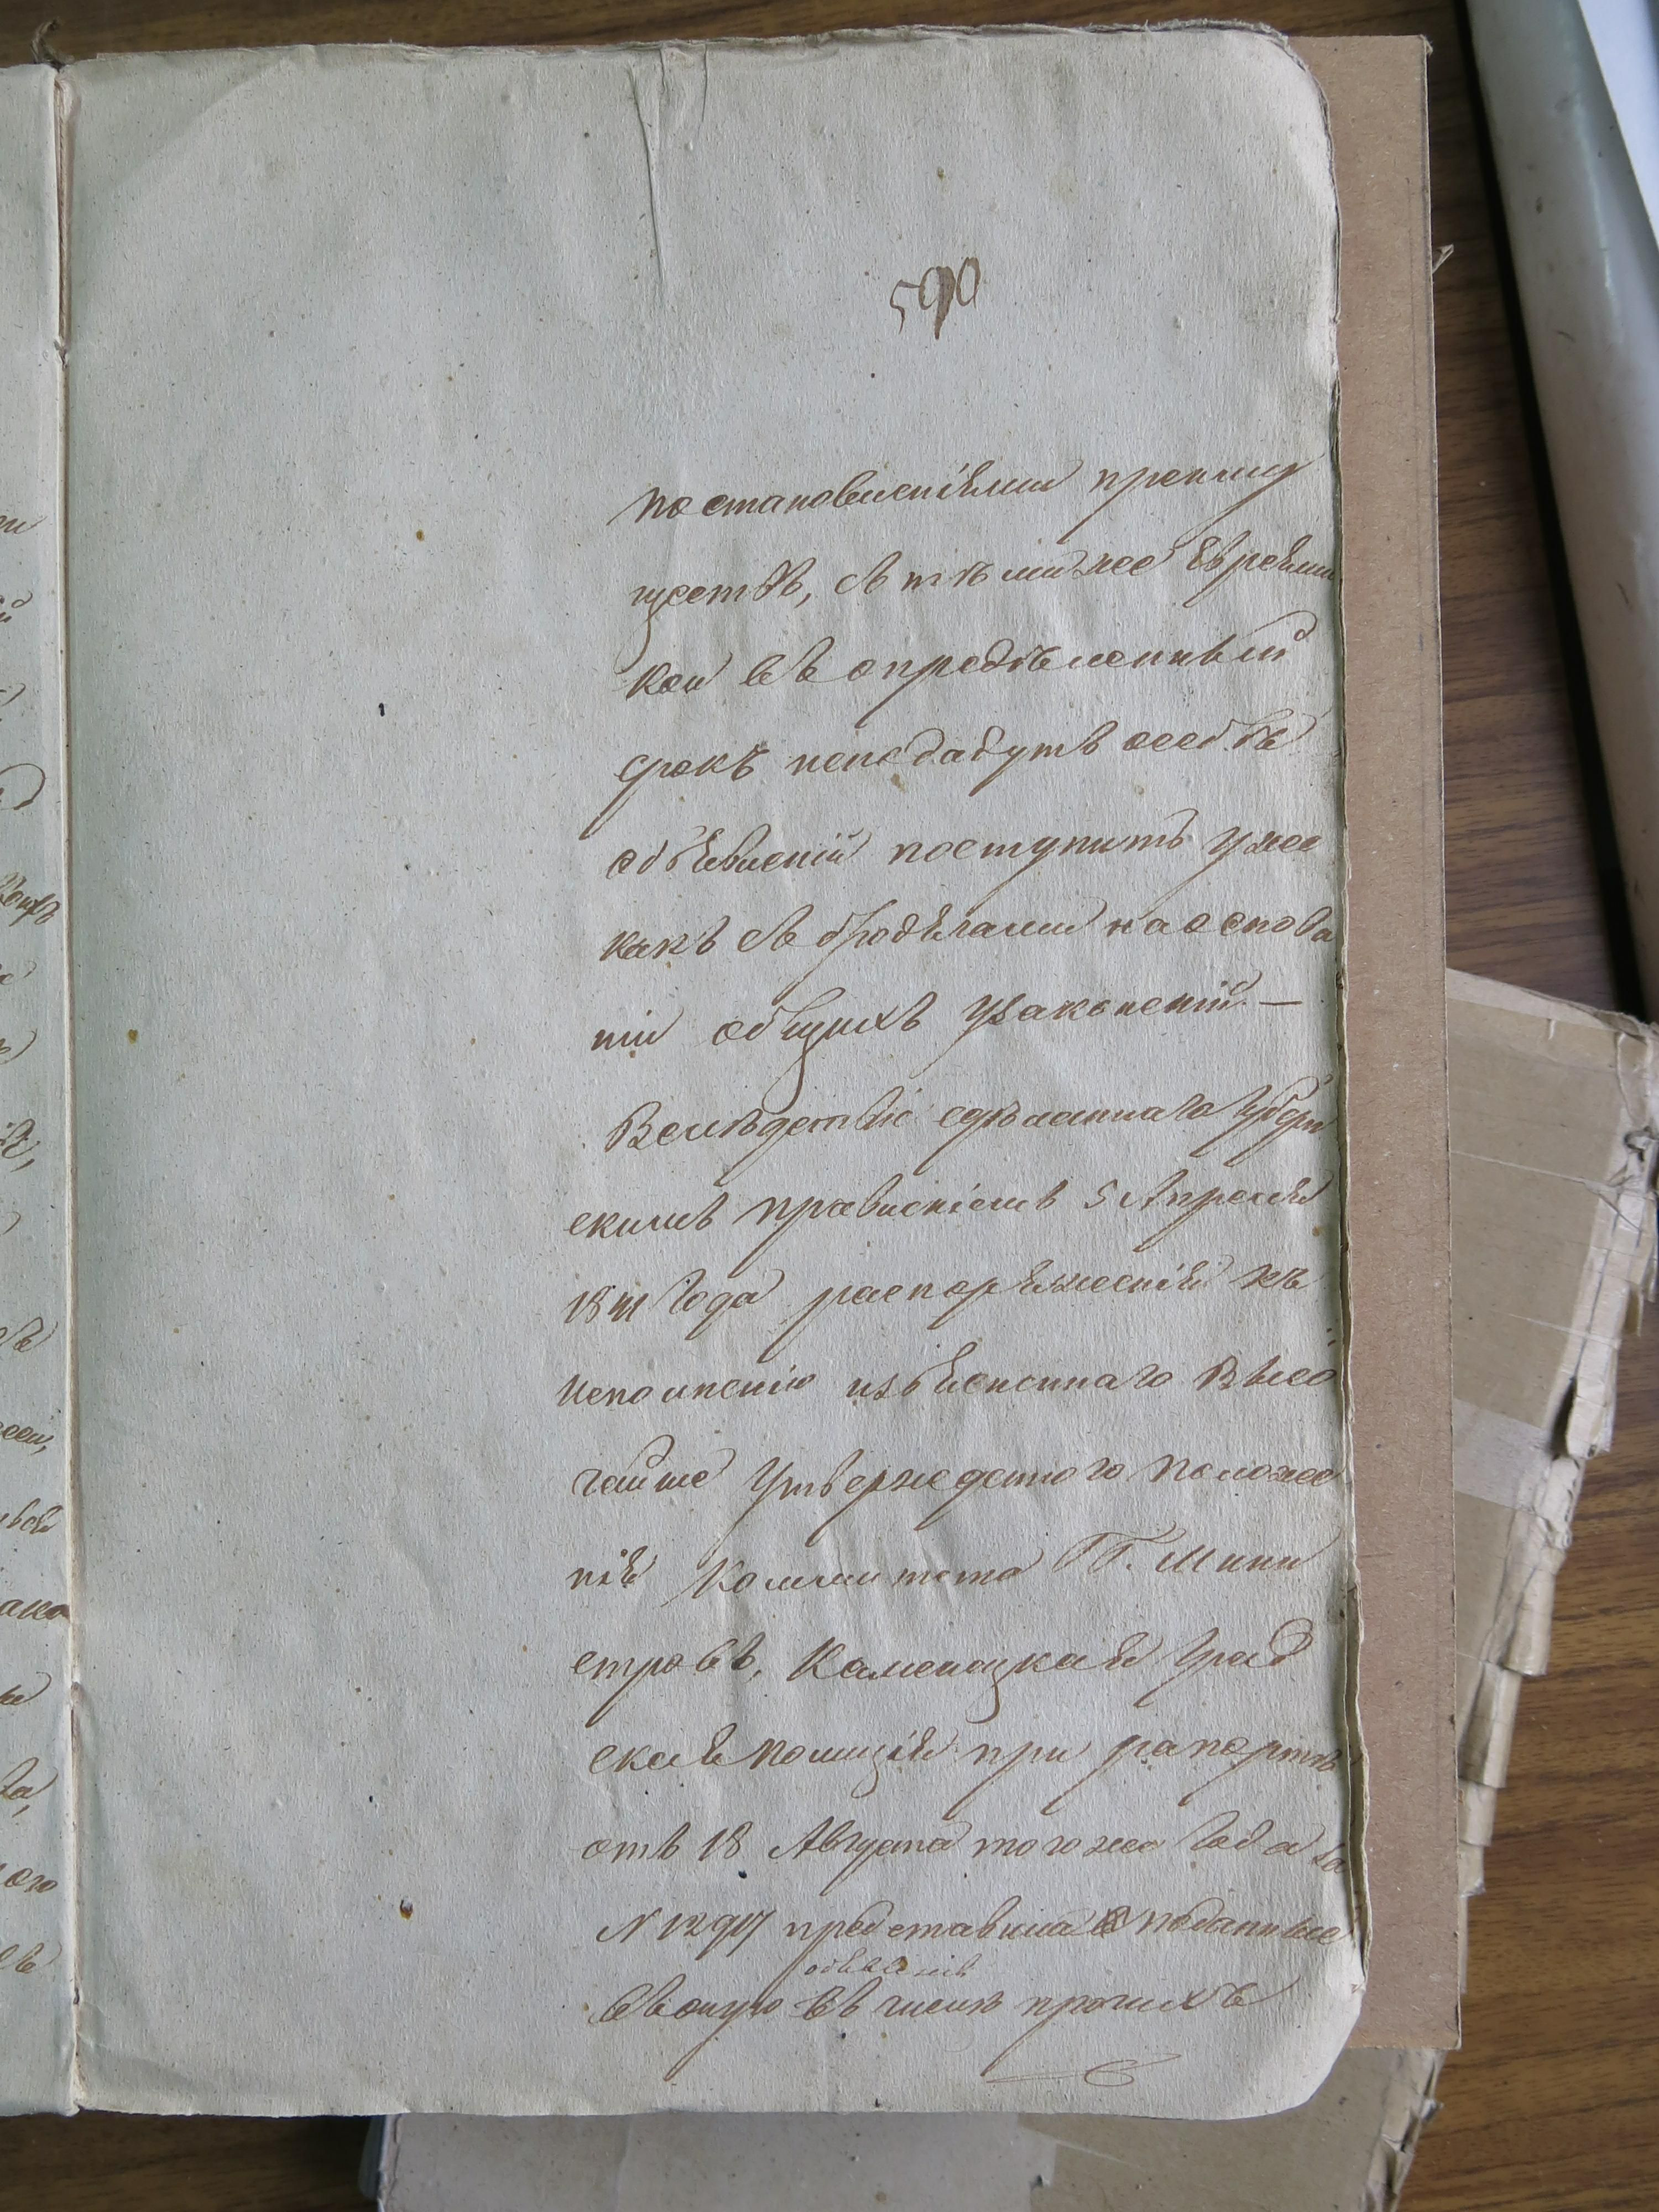 590
постановленіями преиму
ществъ, съ тѣми же Евреями
кои въ опредѣленный
срокъ неподадутъ о себѣ
объявленій поступить уже
какъ съ бродягами на основа
ніи общихъ узаконеній. —
Вслѣдствіе сдѣланнаго Губерн
скимъ правленіемъ 5 Апреля
года распоряженія къ
исполненію изъясненнаго Высо
чайше утвержденного положе
нія Комитета ГГ. Мини
стровъ, Каменецкая Град
ская полиція при рапортѣ
отъ 18 Августа того же года за
N 12917 представила поданные
объявленія
въ оную въ числѣ прочихъ